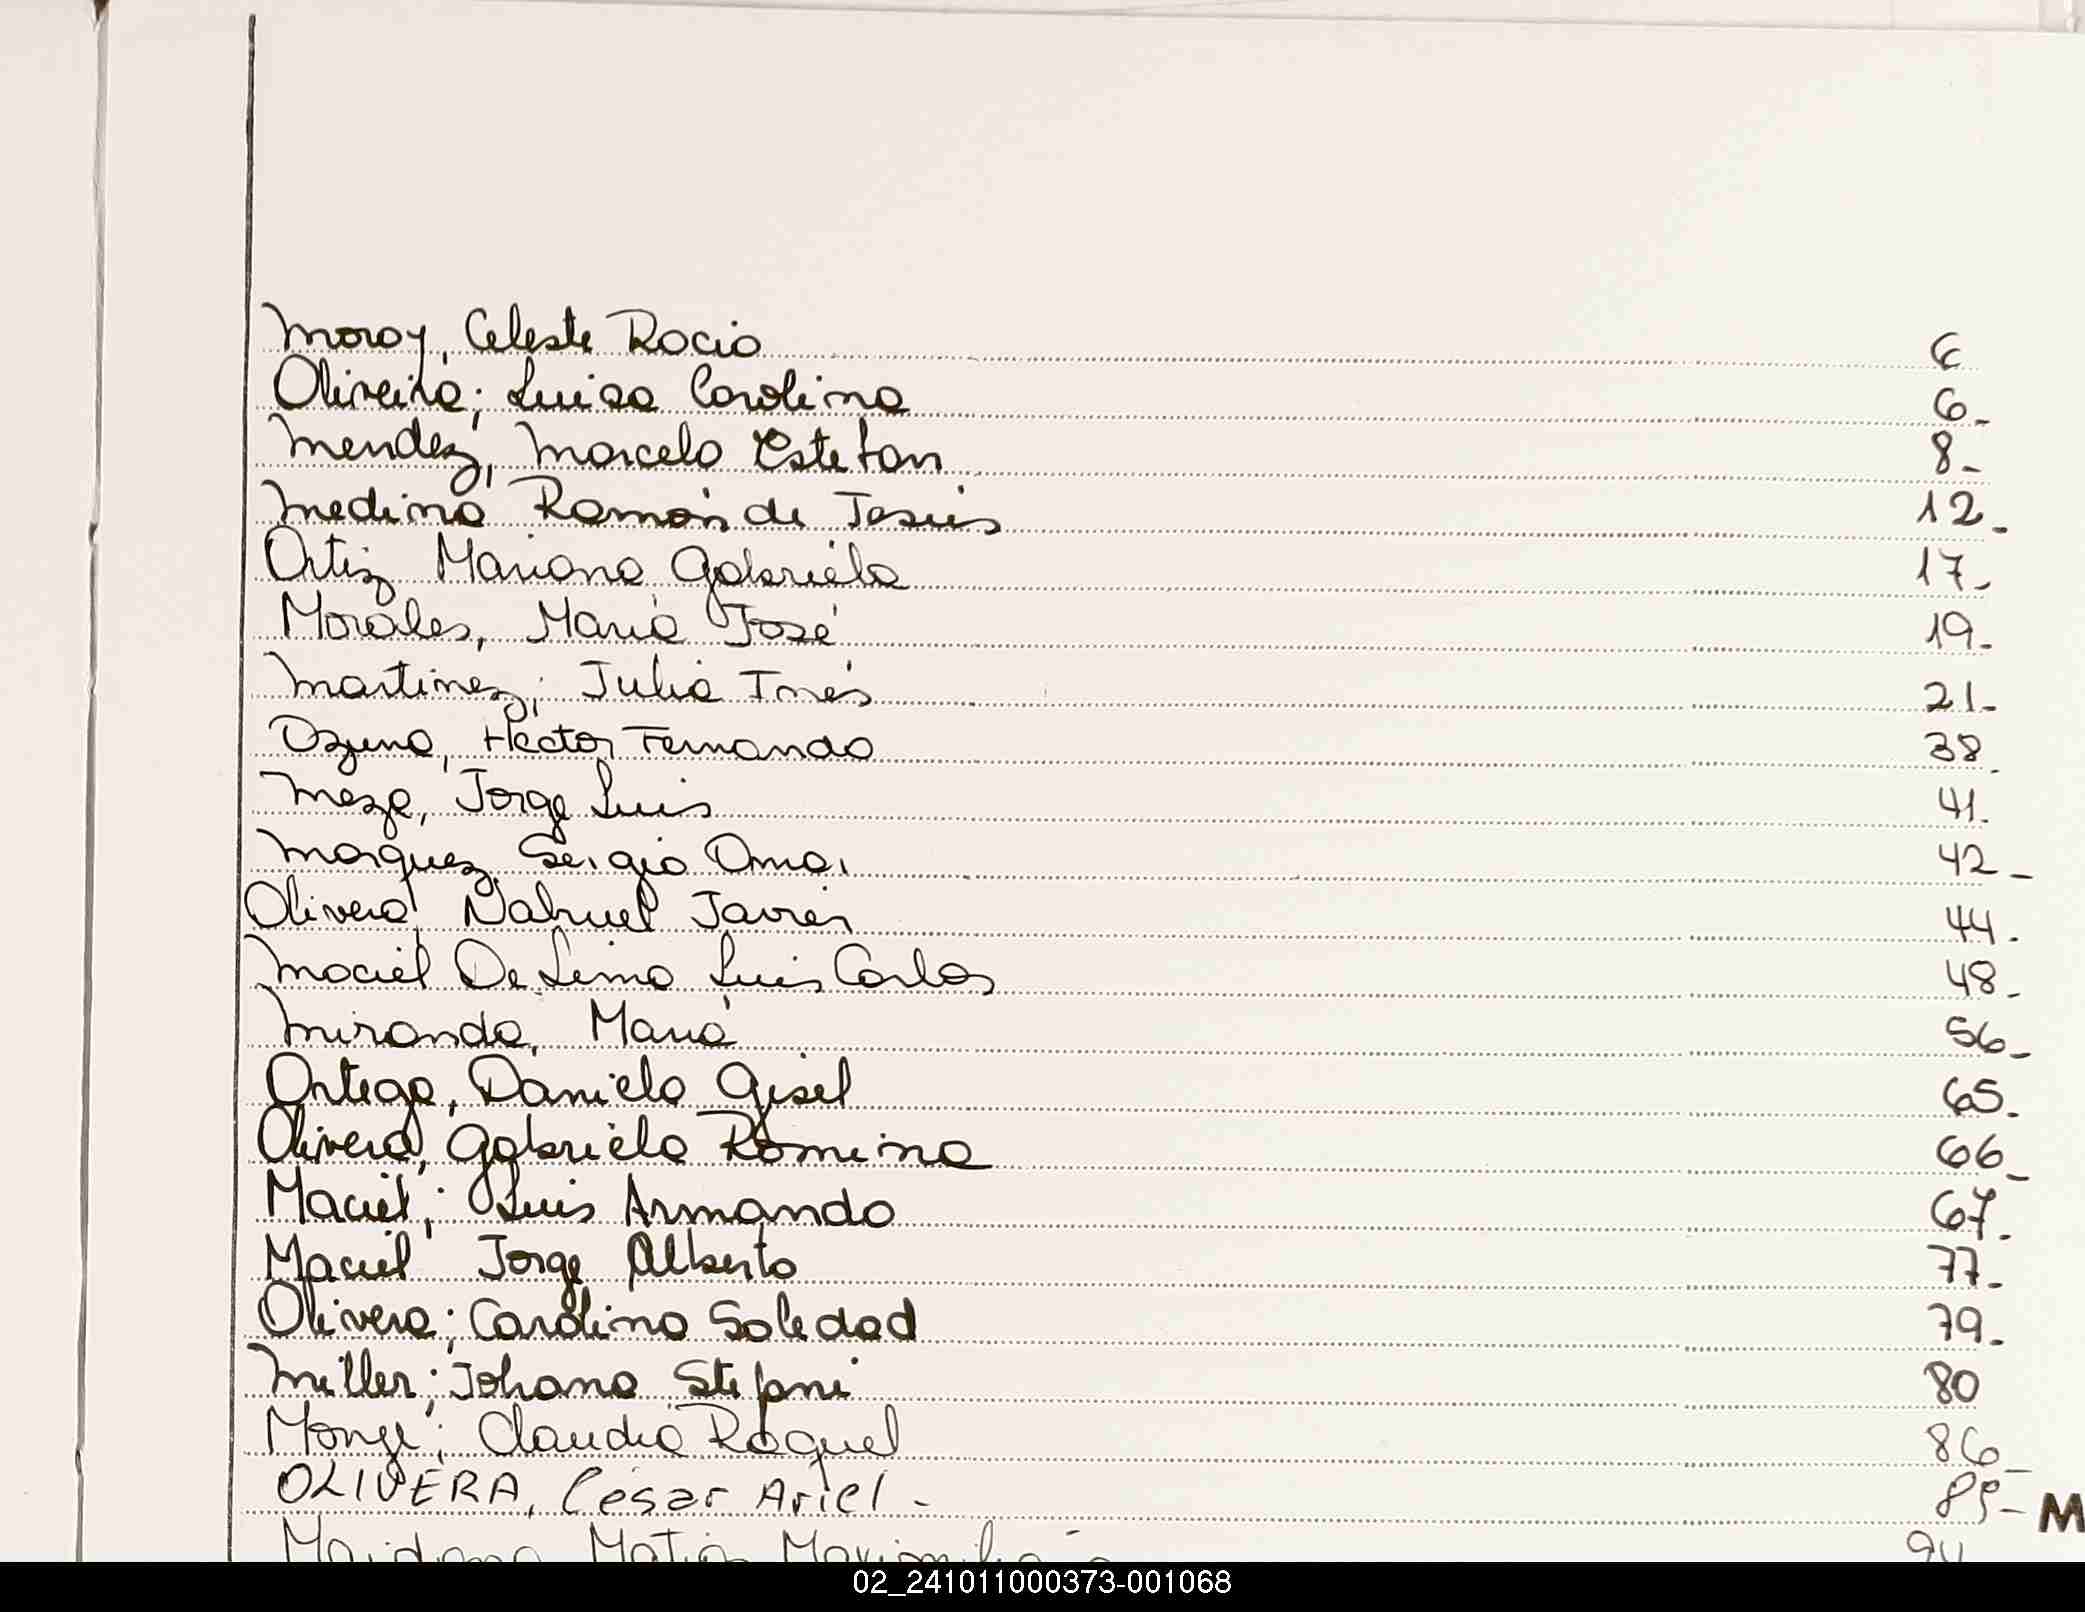 Moroy, Celeste Rocio 6
Oliveira; Luisa Carolina 6-
Mendez, Marcelo Estefan 8-
Medina Ramón de Jesús 12-
Ortiz Mariana Gabriela 17-
Morales, María José 19-
Martinez; Julia Inés 21-
Ozuna, Héctor Fernando 38-
Meza, Jorge Luis 41-
Marquez, Sergio Omar 42-
Olivera Nahuel Javier 44-
Maciel De Lima Luis Carlos 48-
Miranda, María 56-
Ortega, Daniela Gisel 65-
Olivera, Gabriela Romina 66-
Maciel; Luis Armando 67-
Maciel Jorge Alberto 77-
Olivera; Carolina Soledad 79-
Miller; Johana Stefani 80
Monge; Claudia Raquel 86-
OLIVERA, César Ariel - 89- M
Maidana Matías Maximiliano 94
02_241011000373-001068